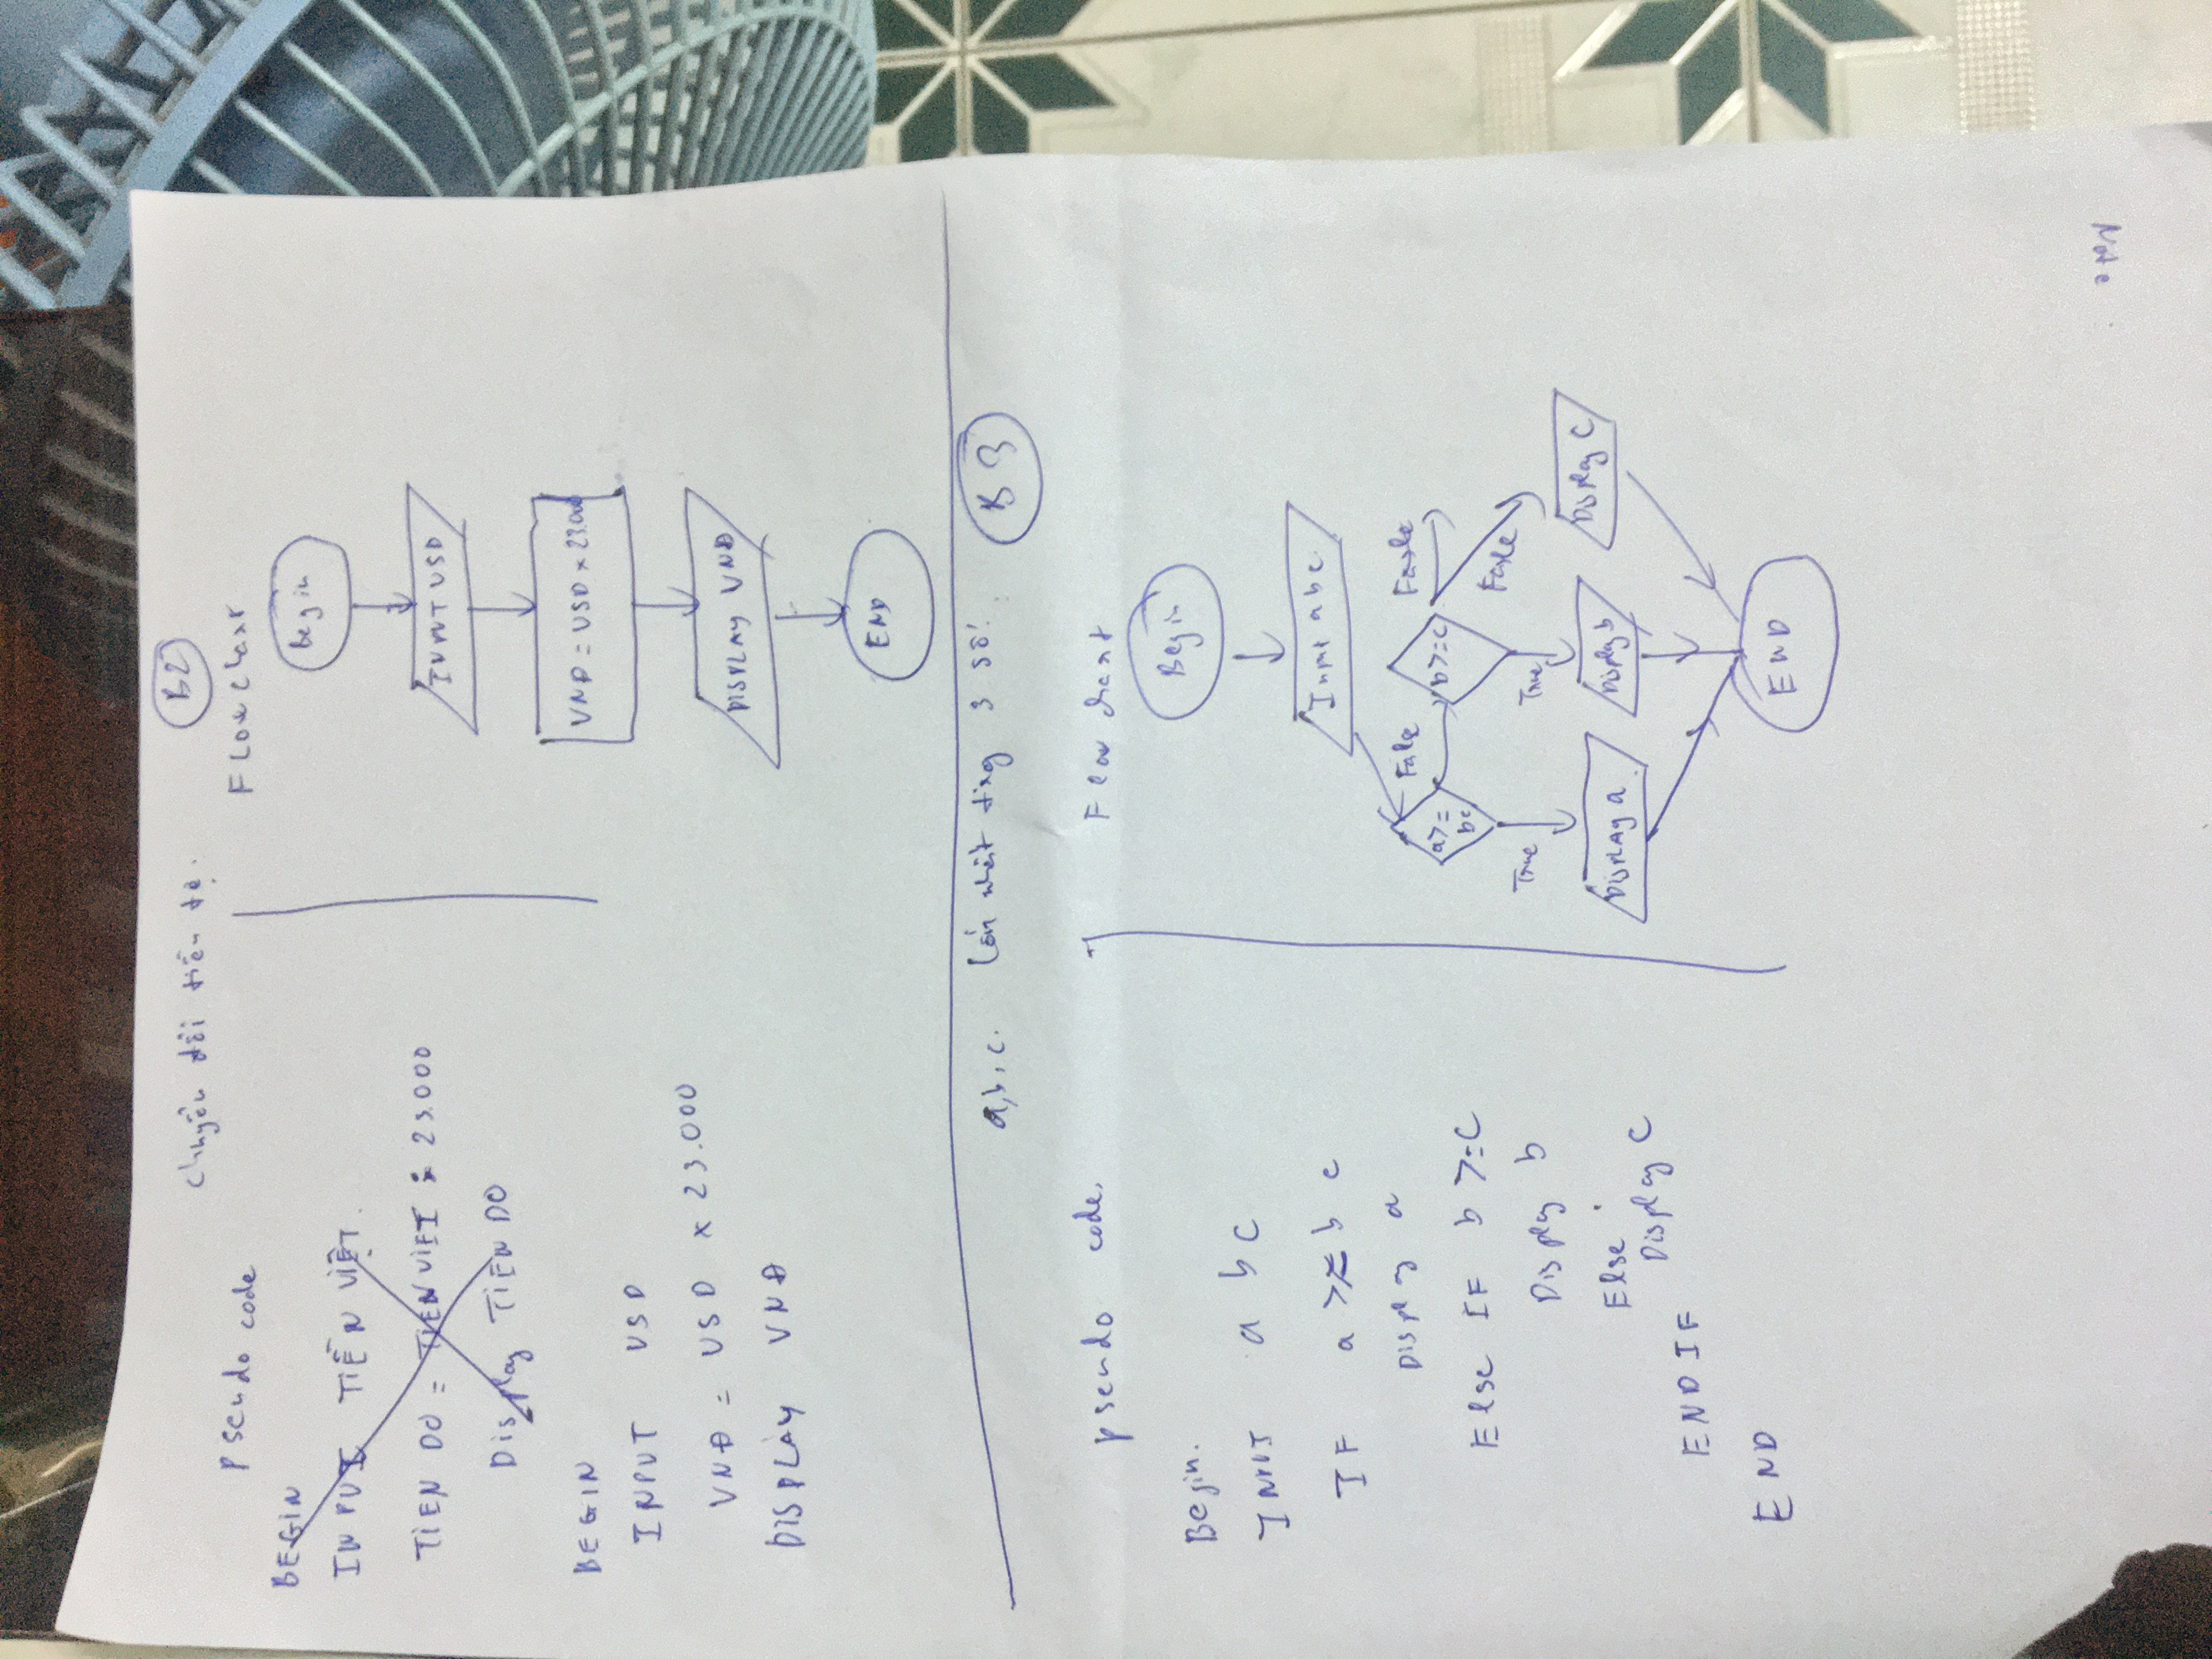 Chuyển đổi tiền tệ.
B2
Pseudo code
BEGIN
INPUT TIỀN VIỆT.
TIEN DO = TIEN VIET : 23.000
Display TIEN DO
BEGIN
INPUT USD
VNĐ = USD x 23.000
DISPLAY VNĐ
Flowchart
Begin
INPUT USD
VNĐ = USD x 23.000
DISPLAY VNĐ
END
a, b, c. lớn nhất trong 3 số!
B3
pseudo code.
Begin.
INPUT a b c
IF a >= b c
Display a
Else IF b >= c
Display b
Else
Display c
END IF
END
Flow chart
Begin
Input a b c.
a >=
bc
False
b >= c
Fasle
Fasle
True
True
DISPLAY a
Display b
Display C
END
Note